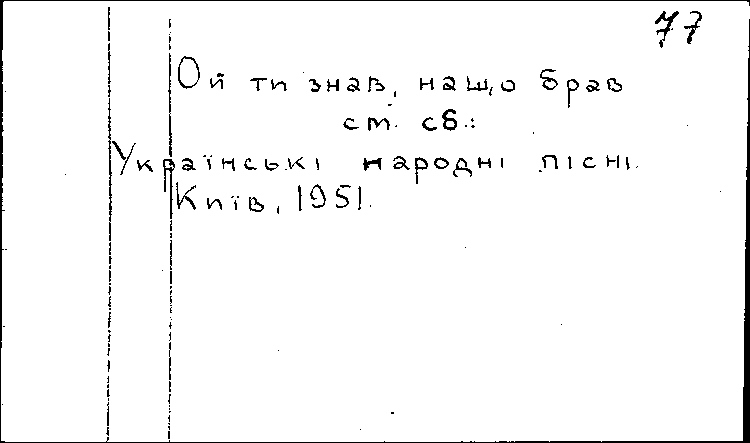 77
Ой ти знав, нащо брав
см. сб.:
Українські народні пісні.
Київ, 1951.